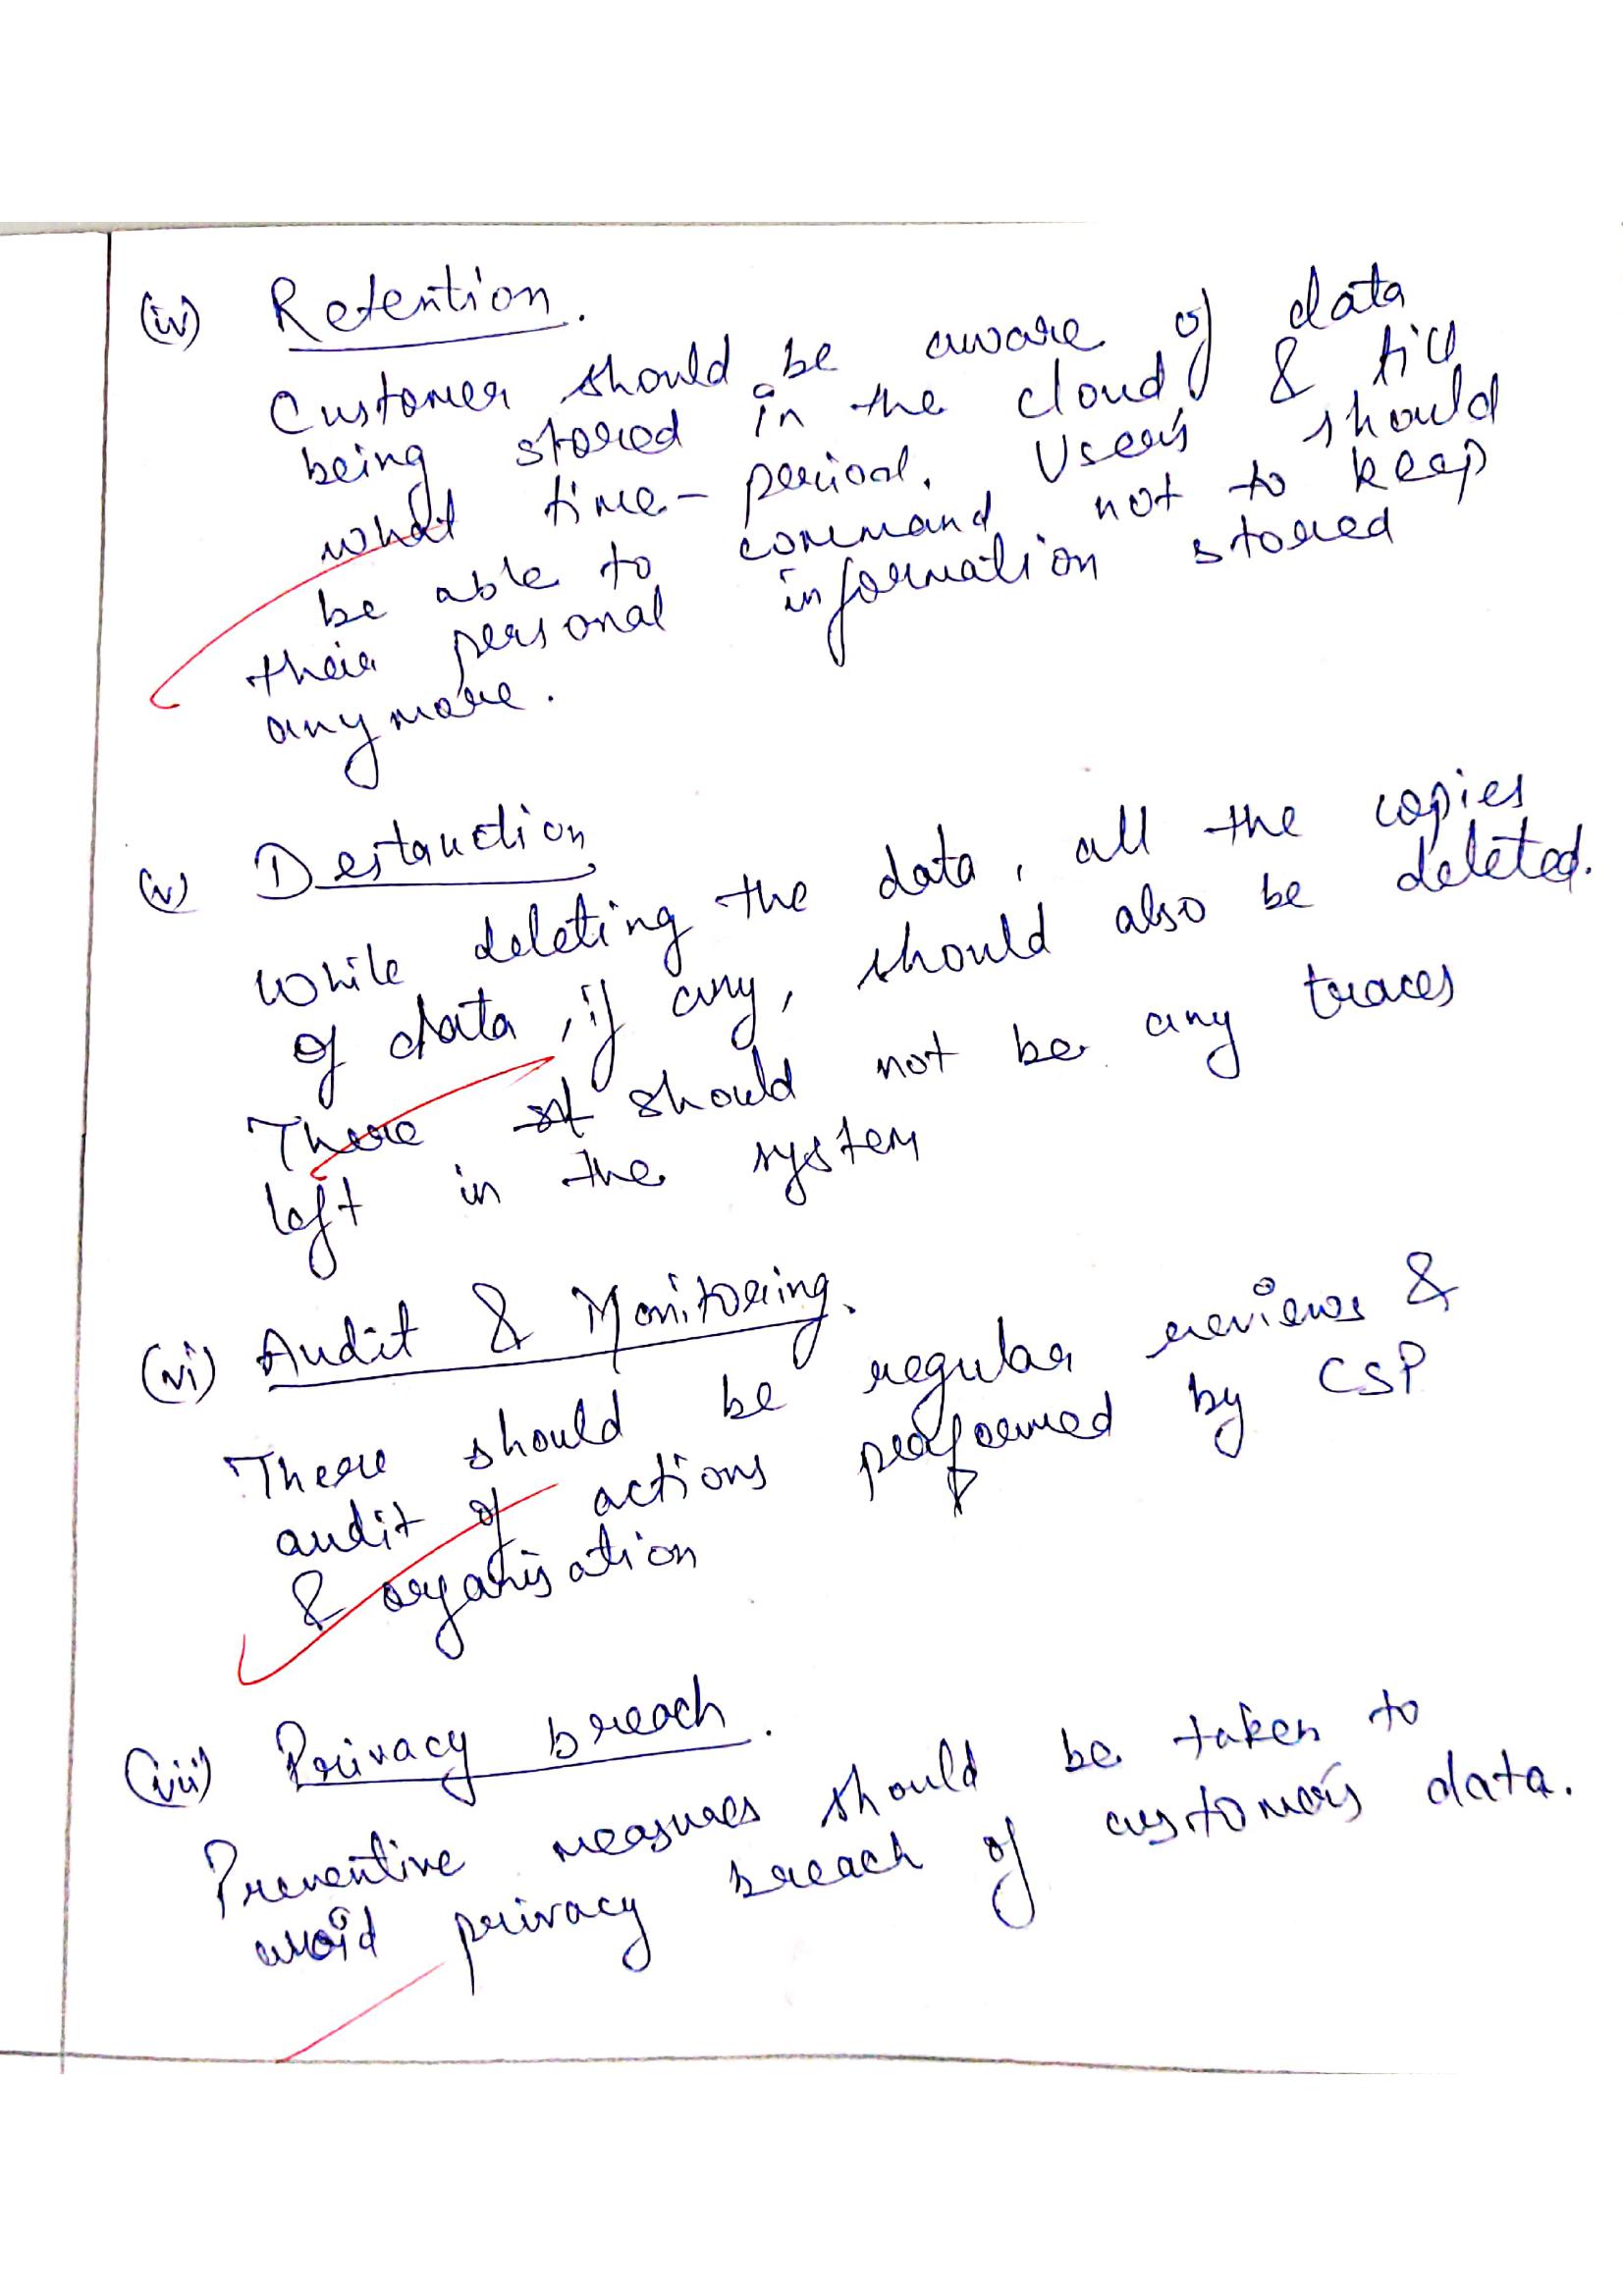 (iv) Retention.
Customer should be aware of data
being stored in the cloud & till
what time-period. Users should
be able to command not to keep
their personal information stored
anymore.
(v) Destruction
While deleting the data, all the copies
of data, if any, should also be deleted.
There st should not be any traces
left in the system
(vi) Audit & Monitoring.
There should be regular reviews &
audit of actions performed by CSP
& organisation
(vii) Privacy breach.
Preventive measures should be taken to
avoid privacy breach of customer's data.